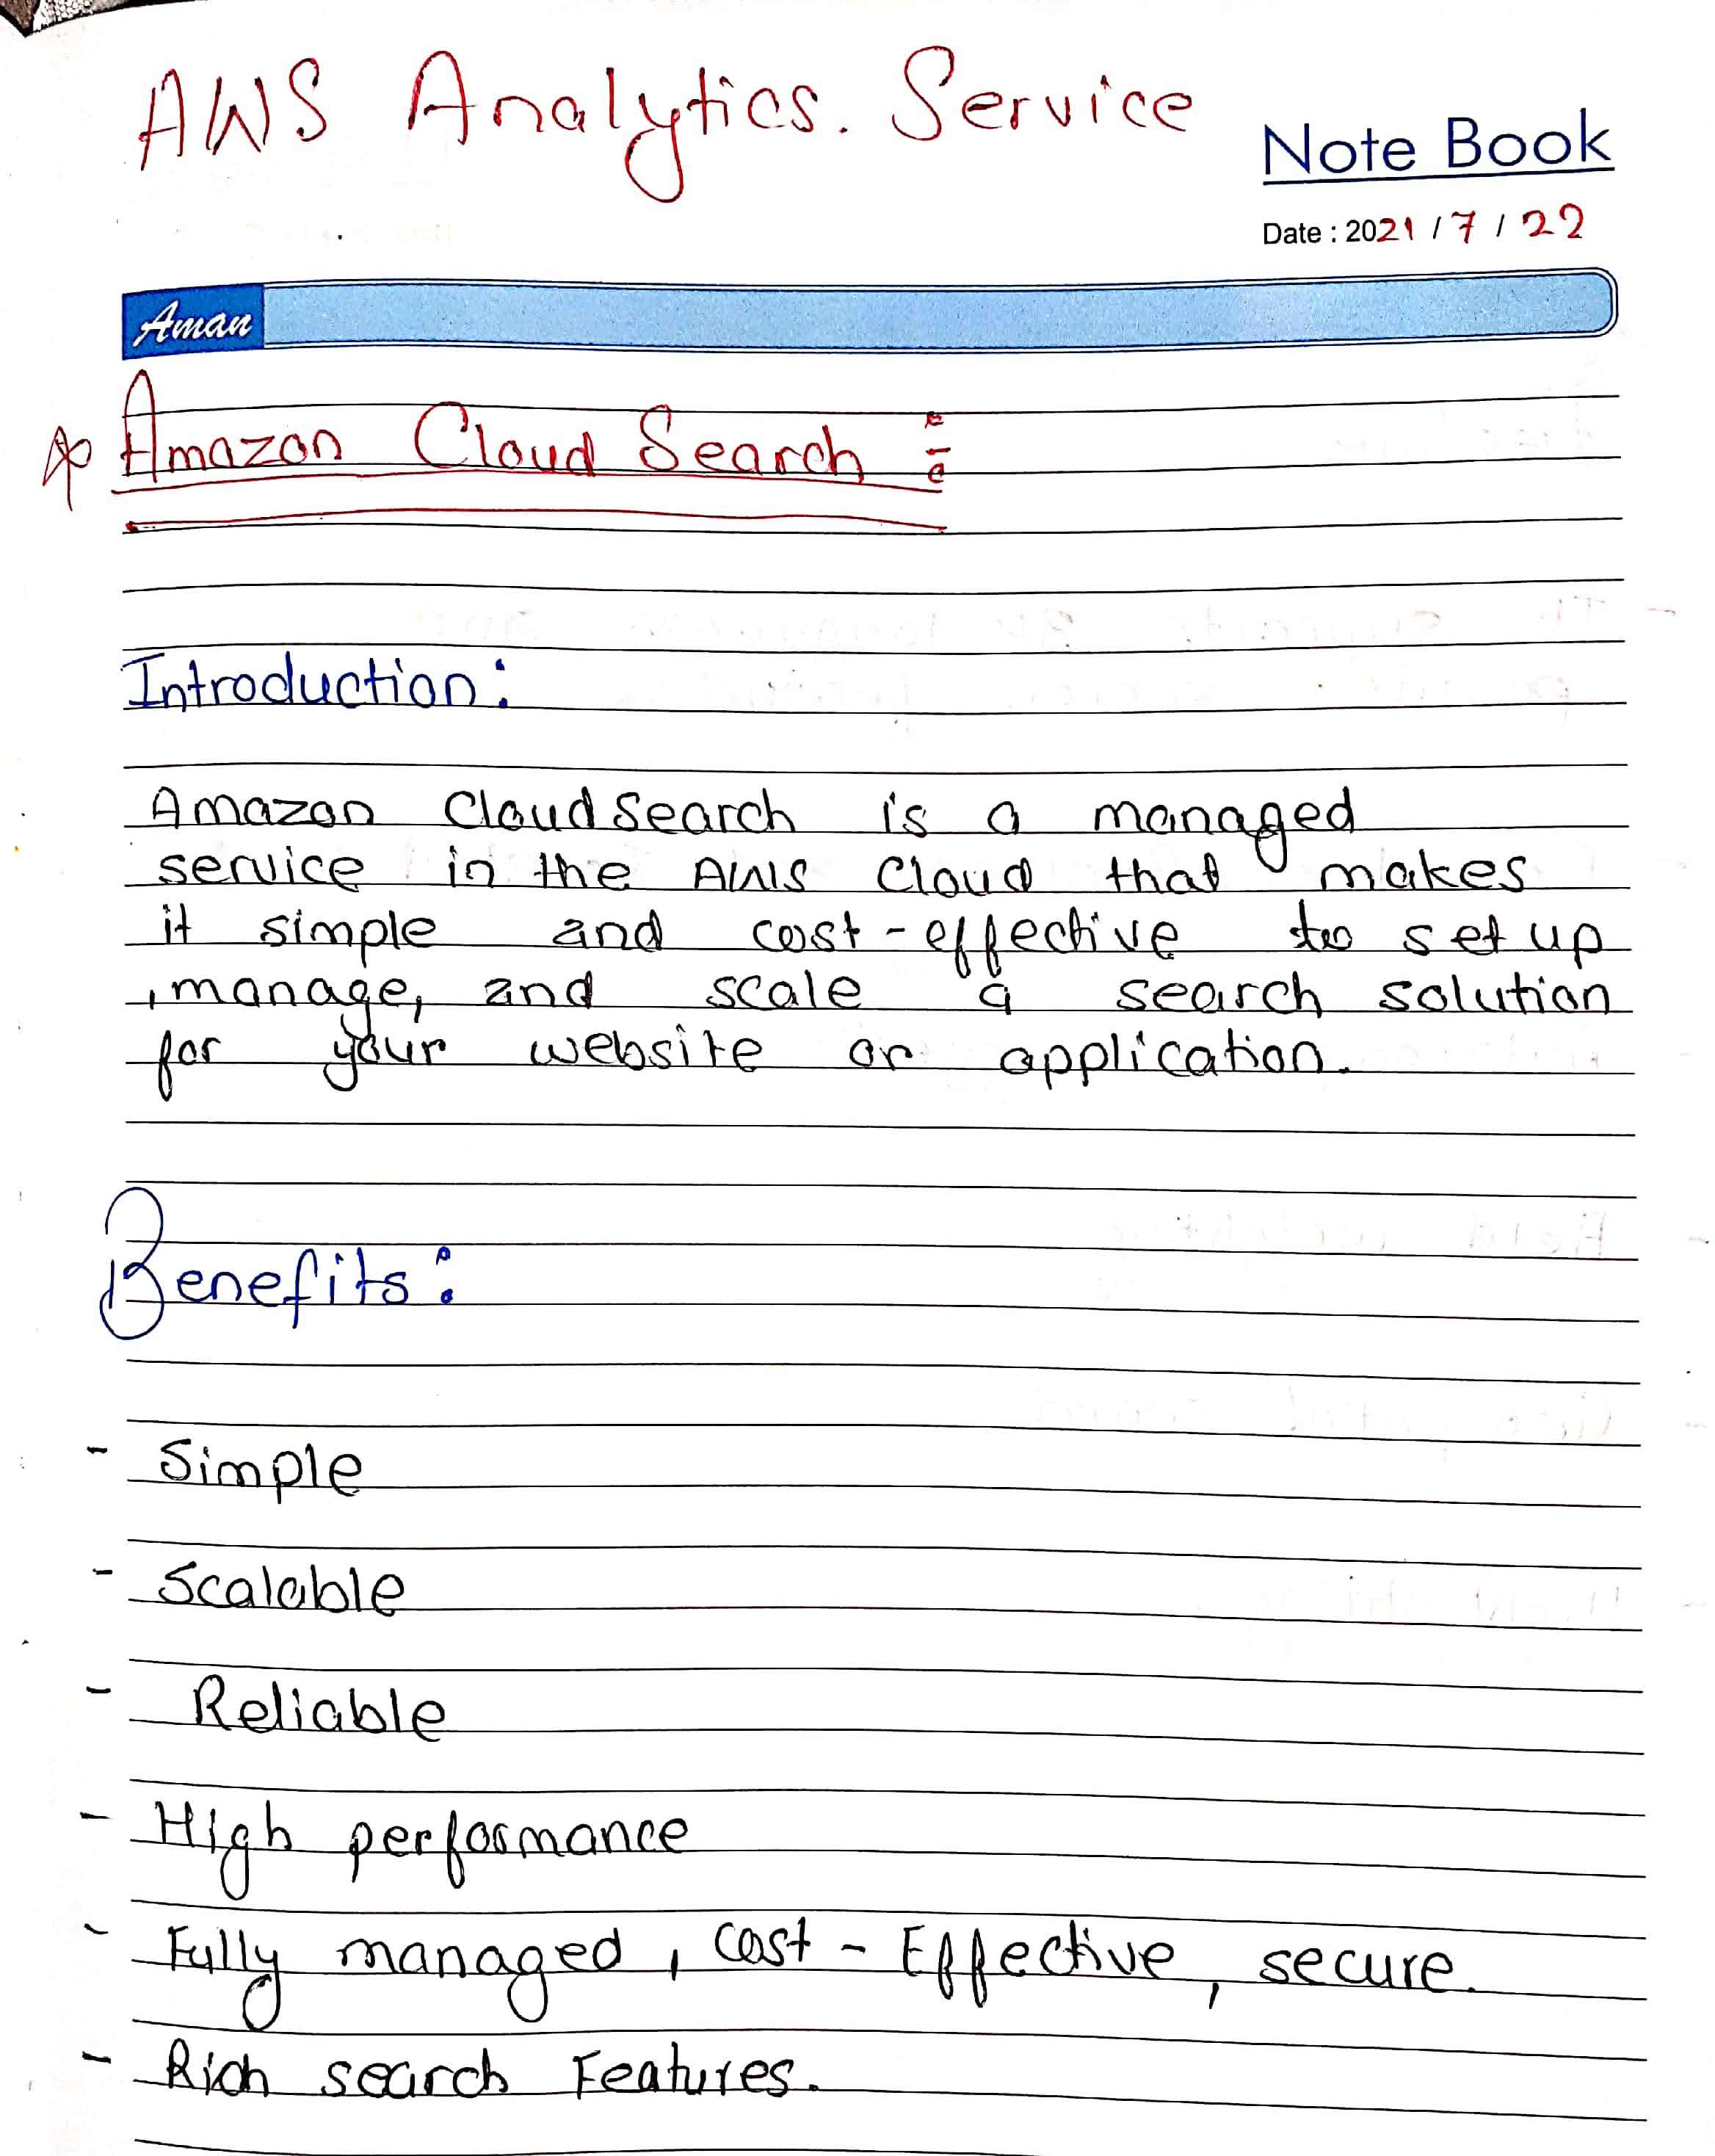 AWS Analytics. Service
Note Book
Date : 2021 / 7 / 22
Aman
Amazon Cloud Search :
Introduction:
Amazon Cloudsearch is a managed
service in the AWS Cloud that makes
it simple and cost-effective to set up
, manage, and scale a search solution
for your website or application.
Benefits:
- Simple
- Scalable
- Reliable
- High performance
- Fully managed, cost-Effective, secure.
- Rich search Features.